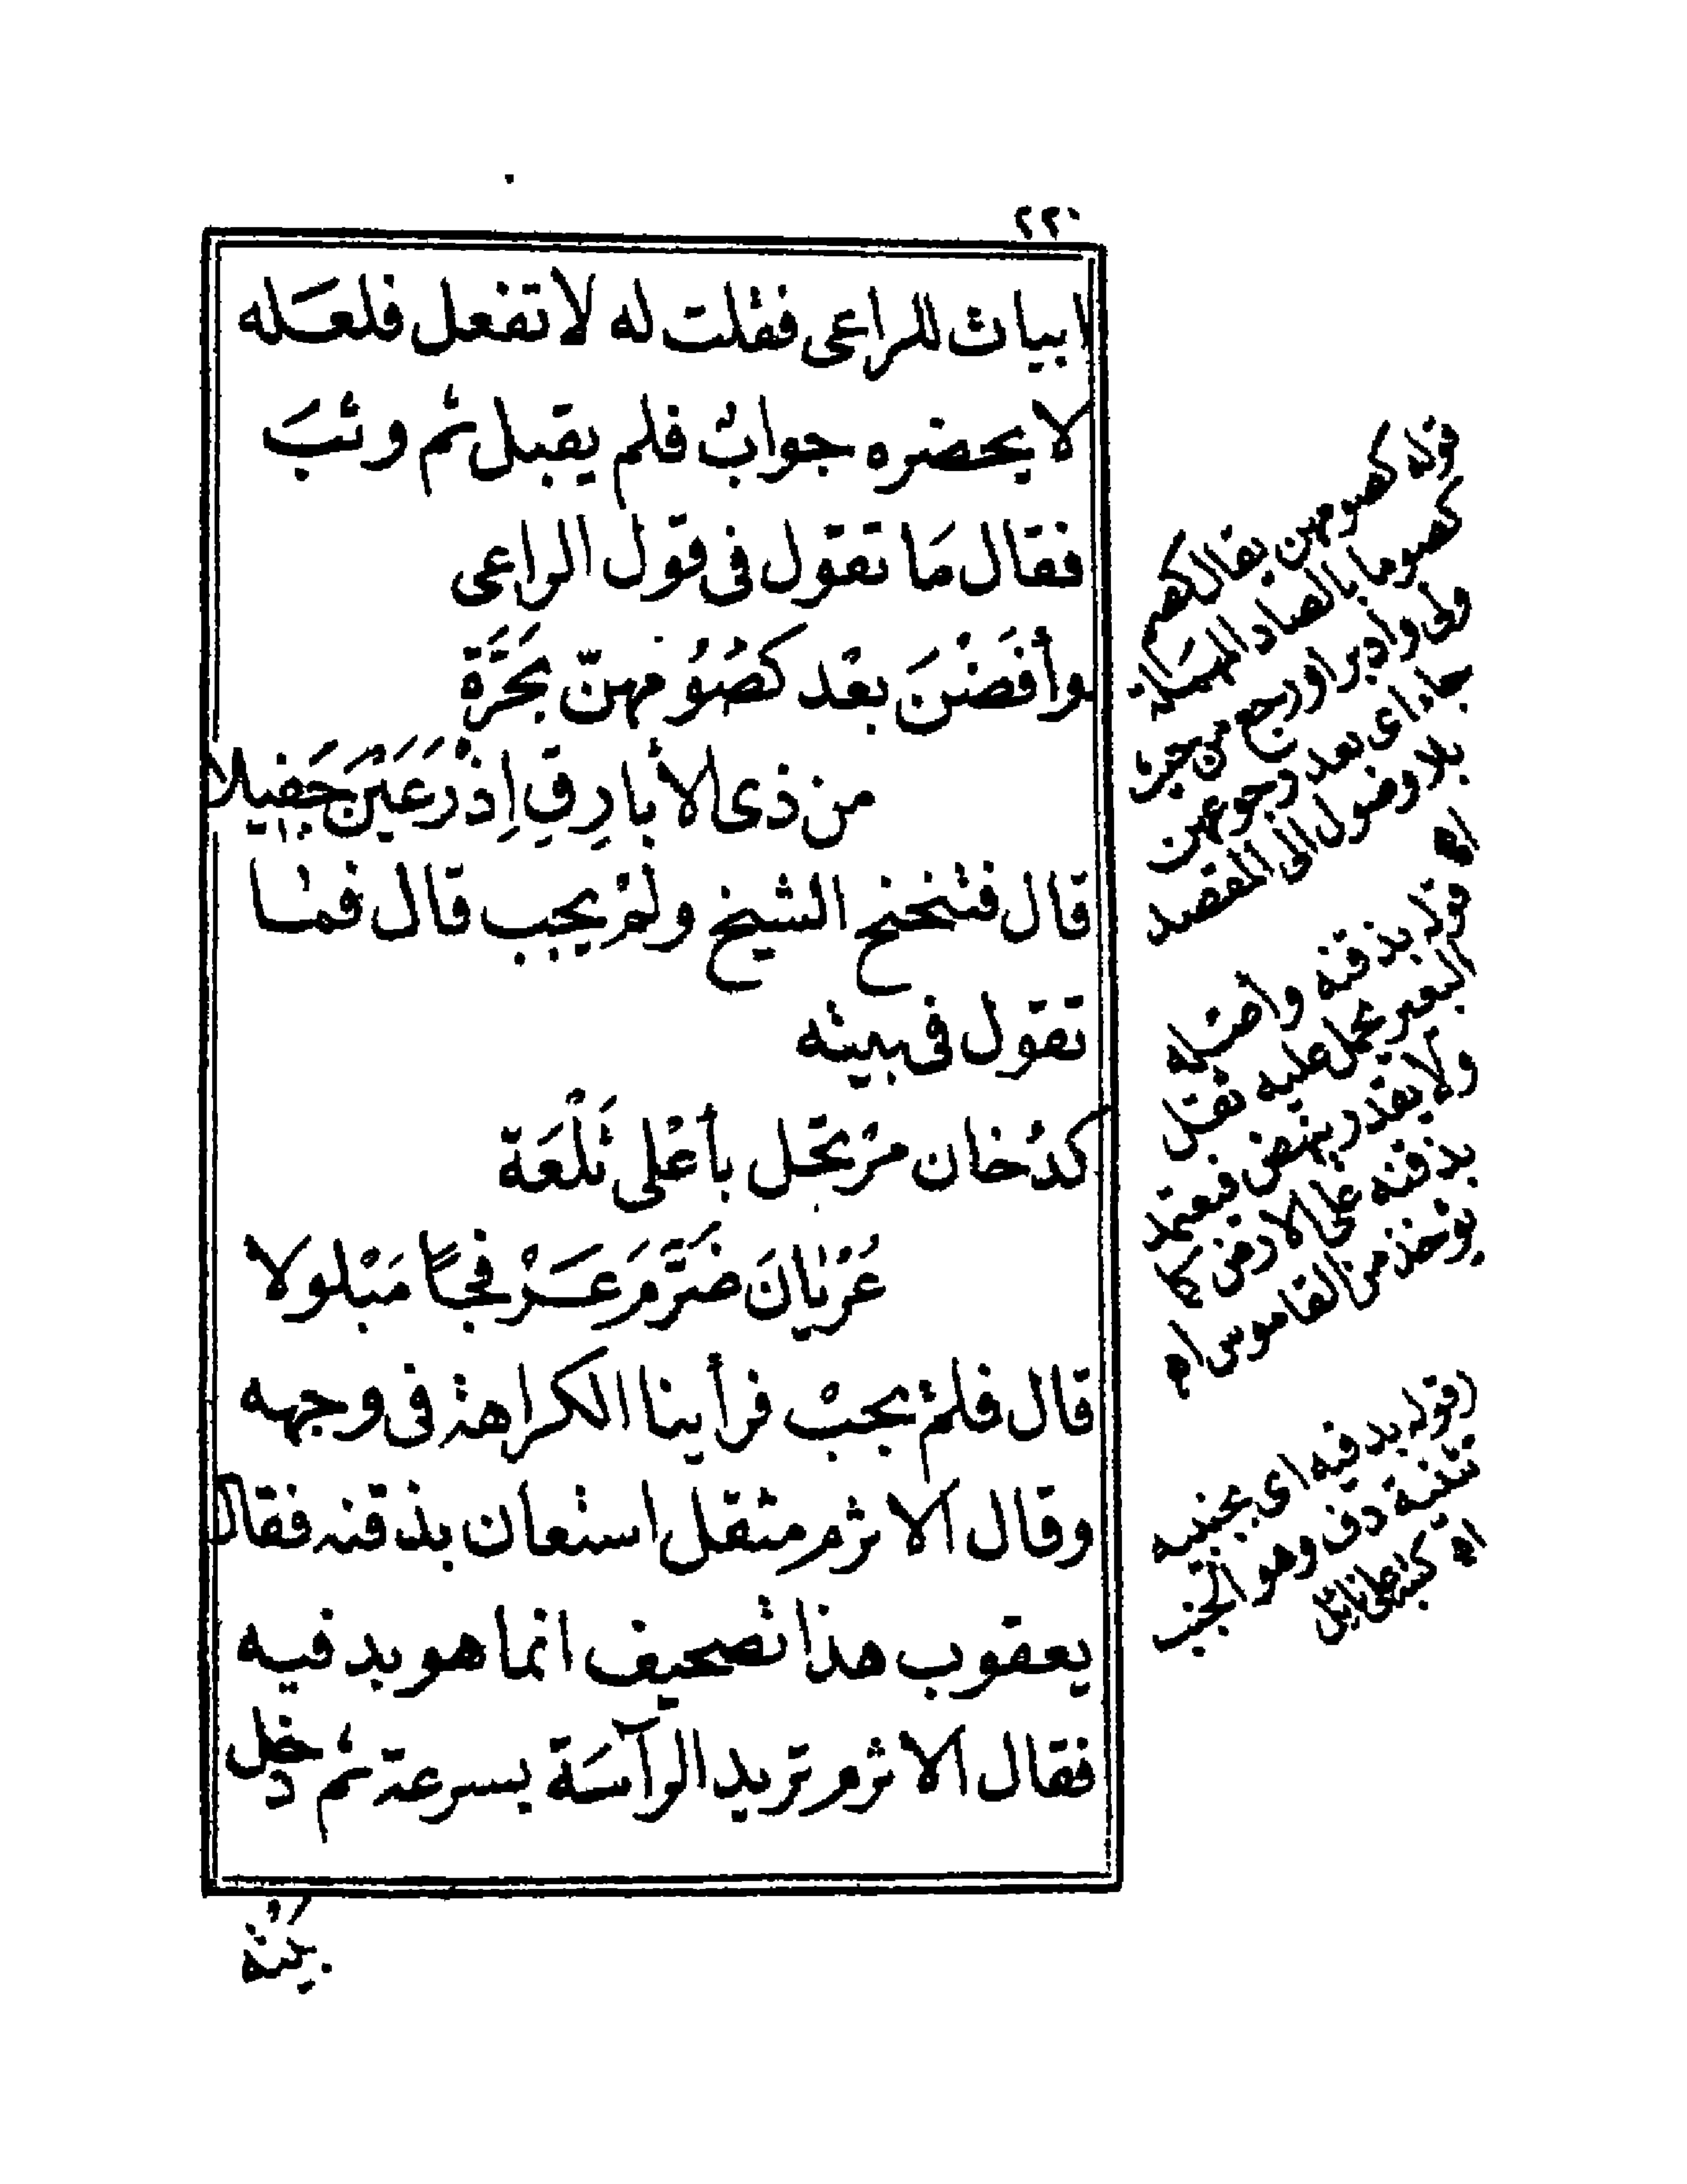 ٢٢٠
ابيات للراعى فقلت له لا تفعل فلعَله
لا يحضره جوابٌ فلم يقبل ثم وثبَ
فقال مَا تقول فى قول الراعى
وأفَضْنَ بعْد كصُوُمهنّ بجَرَّة
من ذى الأبارِقِ اِذْرَعَيْنَ حَفِيلا
قال فتنحنح الشيخ ولمْ يجب قال فما
تقول فى بيته
كدُخان مرْتحَل بأعْلى تَلْعَة
غَرْثانَ ضَرَّمَ عَرْفجًا مَبْلولا
قال فلمْ يجبْ فرأينا الكراهة فى وجهه
وقال الاثرم مثقل استعان بذقنه فقال
يعقوب هذا تصحيف انما هو بدفيه
فقال الاثرم تريد الرآسَة بسرعة ثم دخل
بَيْتَه
قوله كصومهن يقال كصم
كصوما بالصاد المهملة
ولى وادبر او رجع من حيث
جاء اى بعد رجوعهن
بلا وصول الى المقصد
اه
قوله بذقنه واصله
البعير يحمل عليه ثقل
ولا يقدر ينهض فيعتمد
بذقنه على الارض كما
يؤخذ من القاموس اه
(قوله بدفيه اى بجنبيه
تثنية دف وهو الجنب
اه